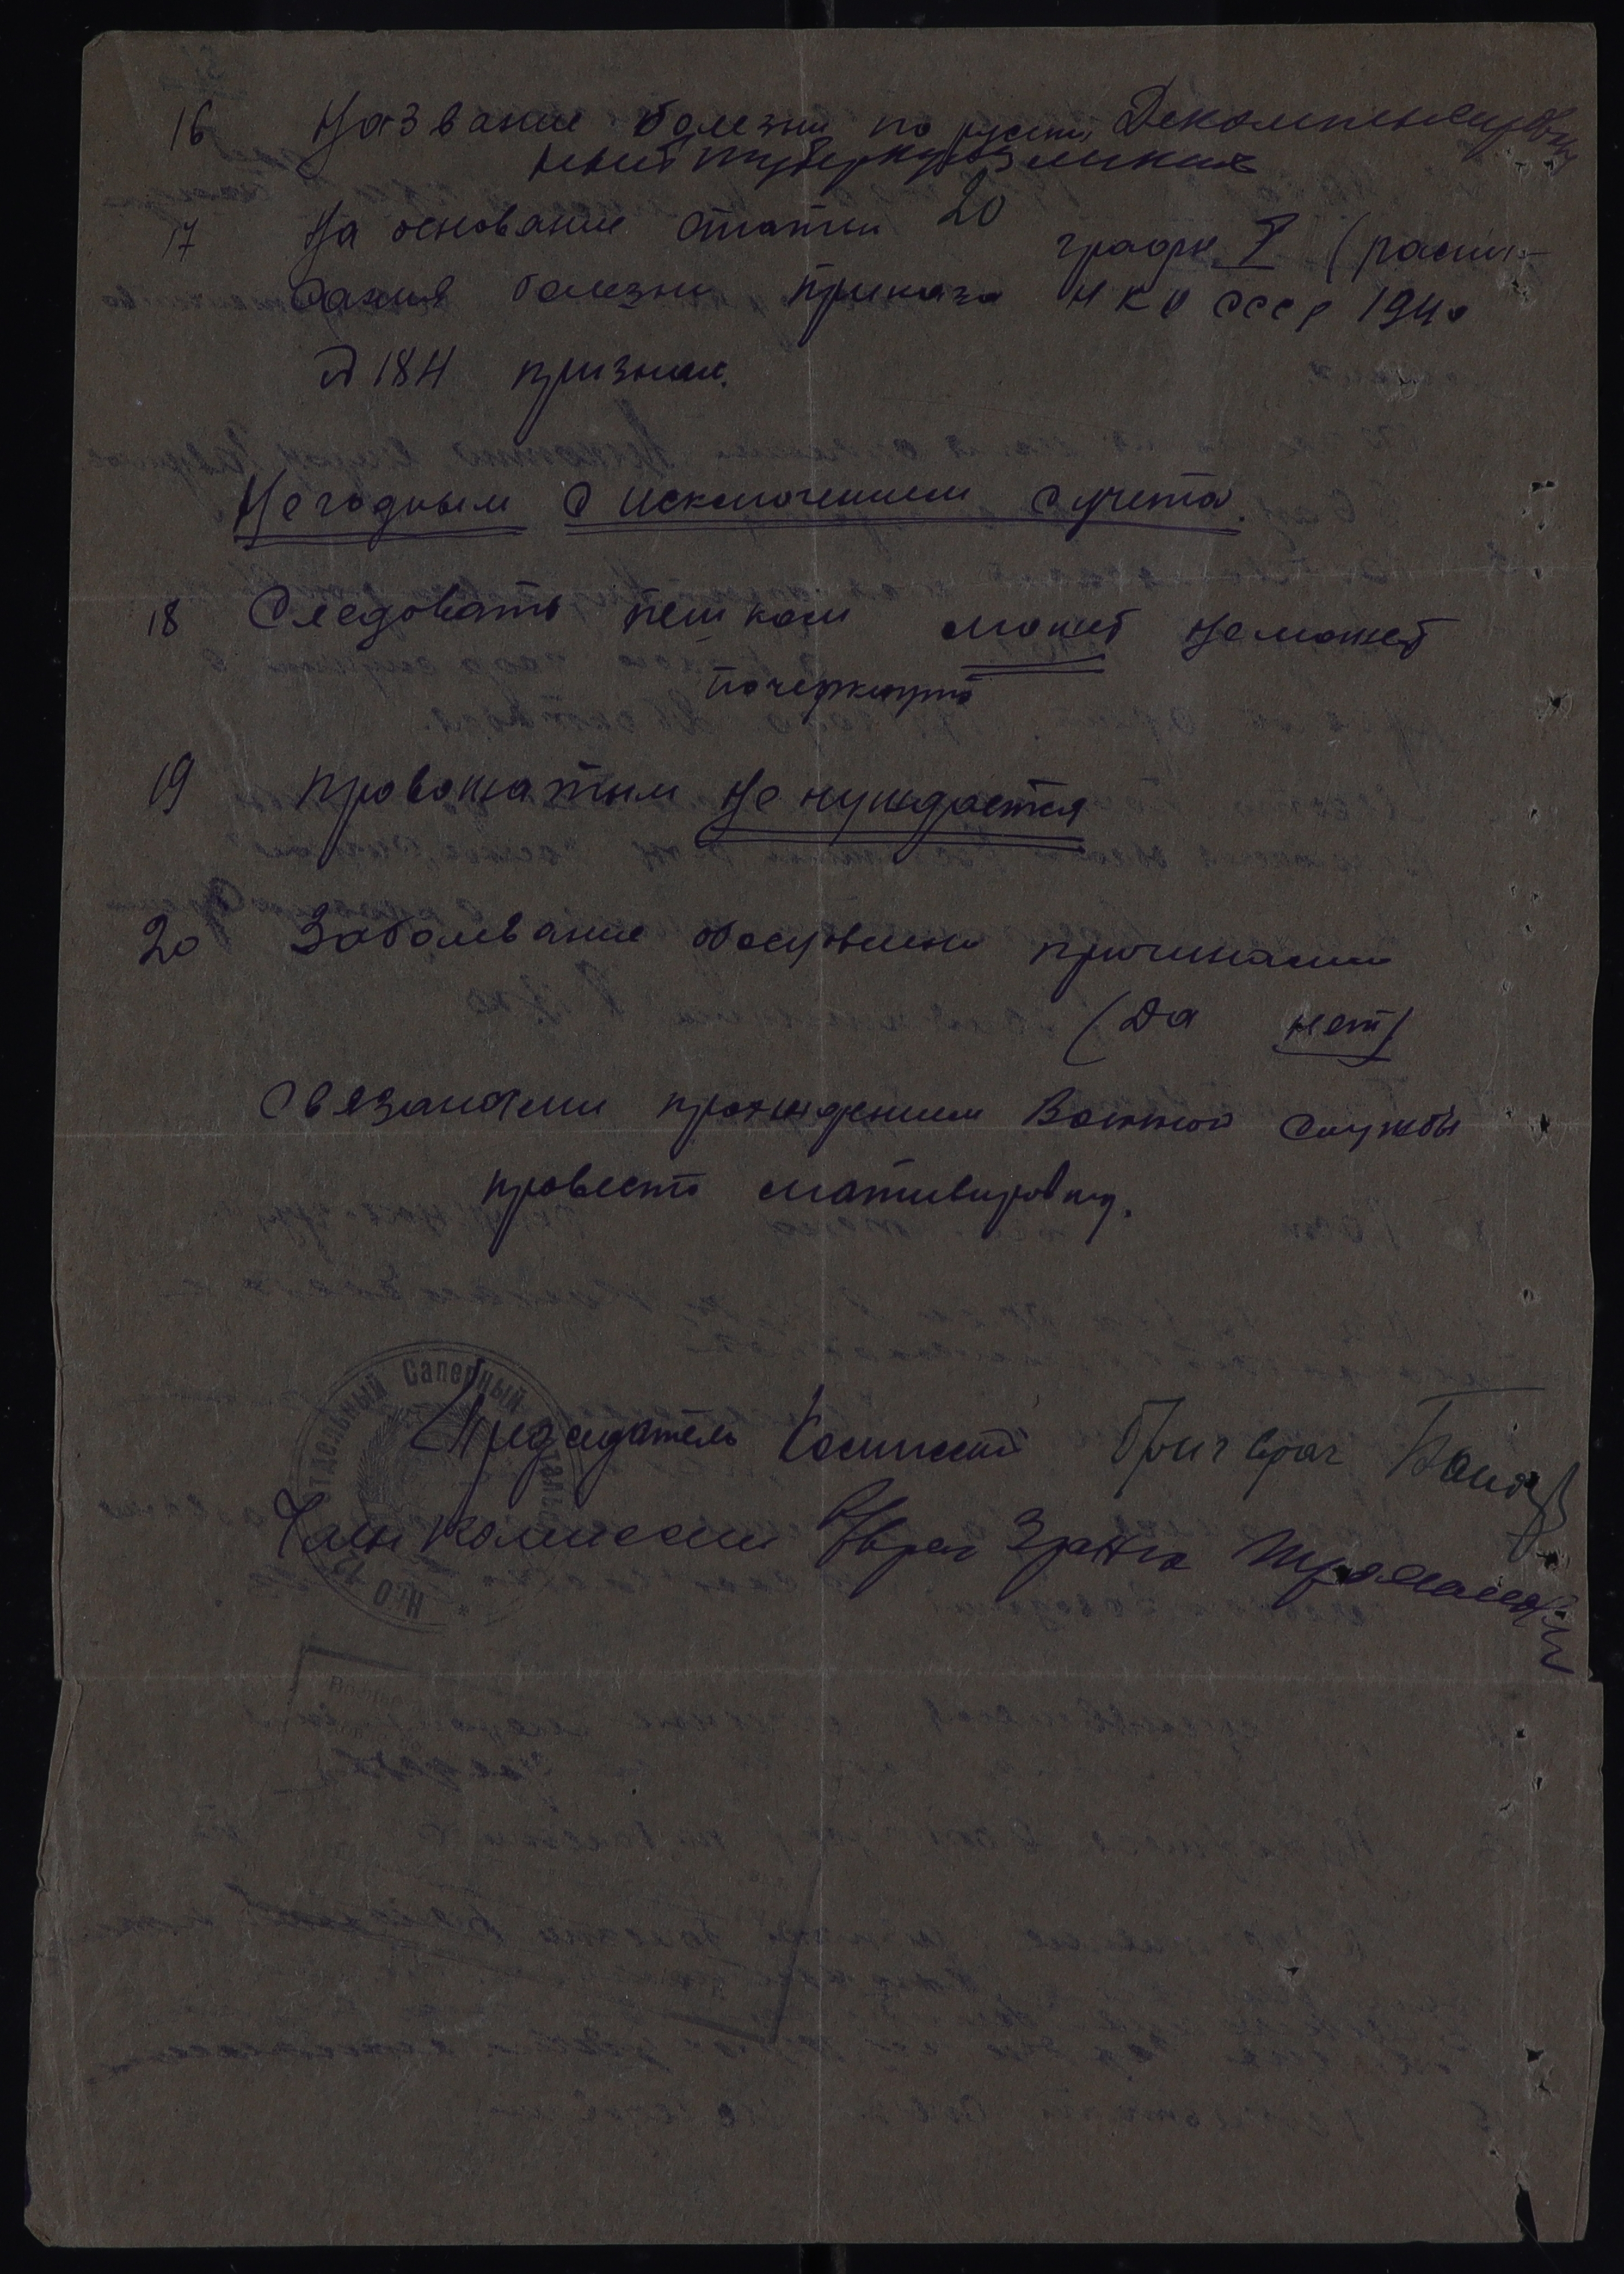 16 Название болезни по русски Декомпенсирован
ный туберкулоз легких
17 На основание статьи 20 граф. I (распи-
сания болезни приказа НКО СССР 1940
№ 184 признан.
Негодным с исключением с учета.
18 Следовать пешком может не может
почеркнуто
19 Провожатым не нуждается
20 Заболевание обсусловлено причинами
(Да нет)
Связанными прохождением Военной службы
провести мативировку.
Отдельный Саперный
НКО
Председатель Комиссии Бригврач
Член комиссии врач 3 ранга